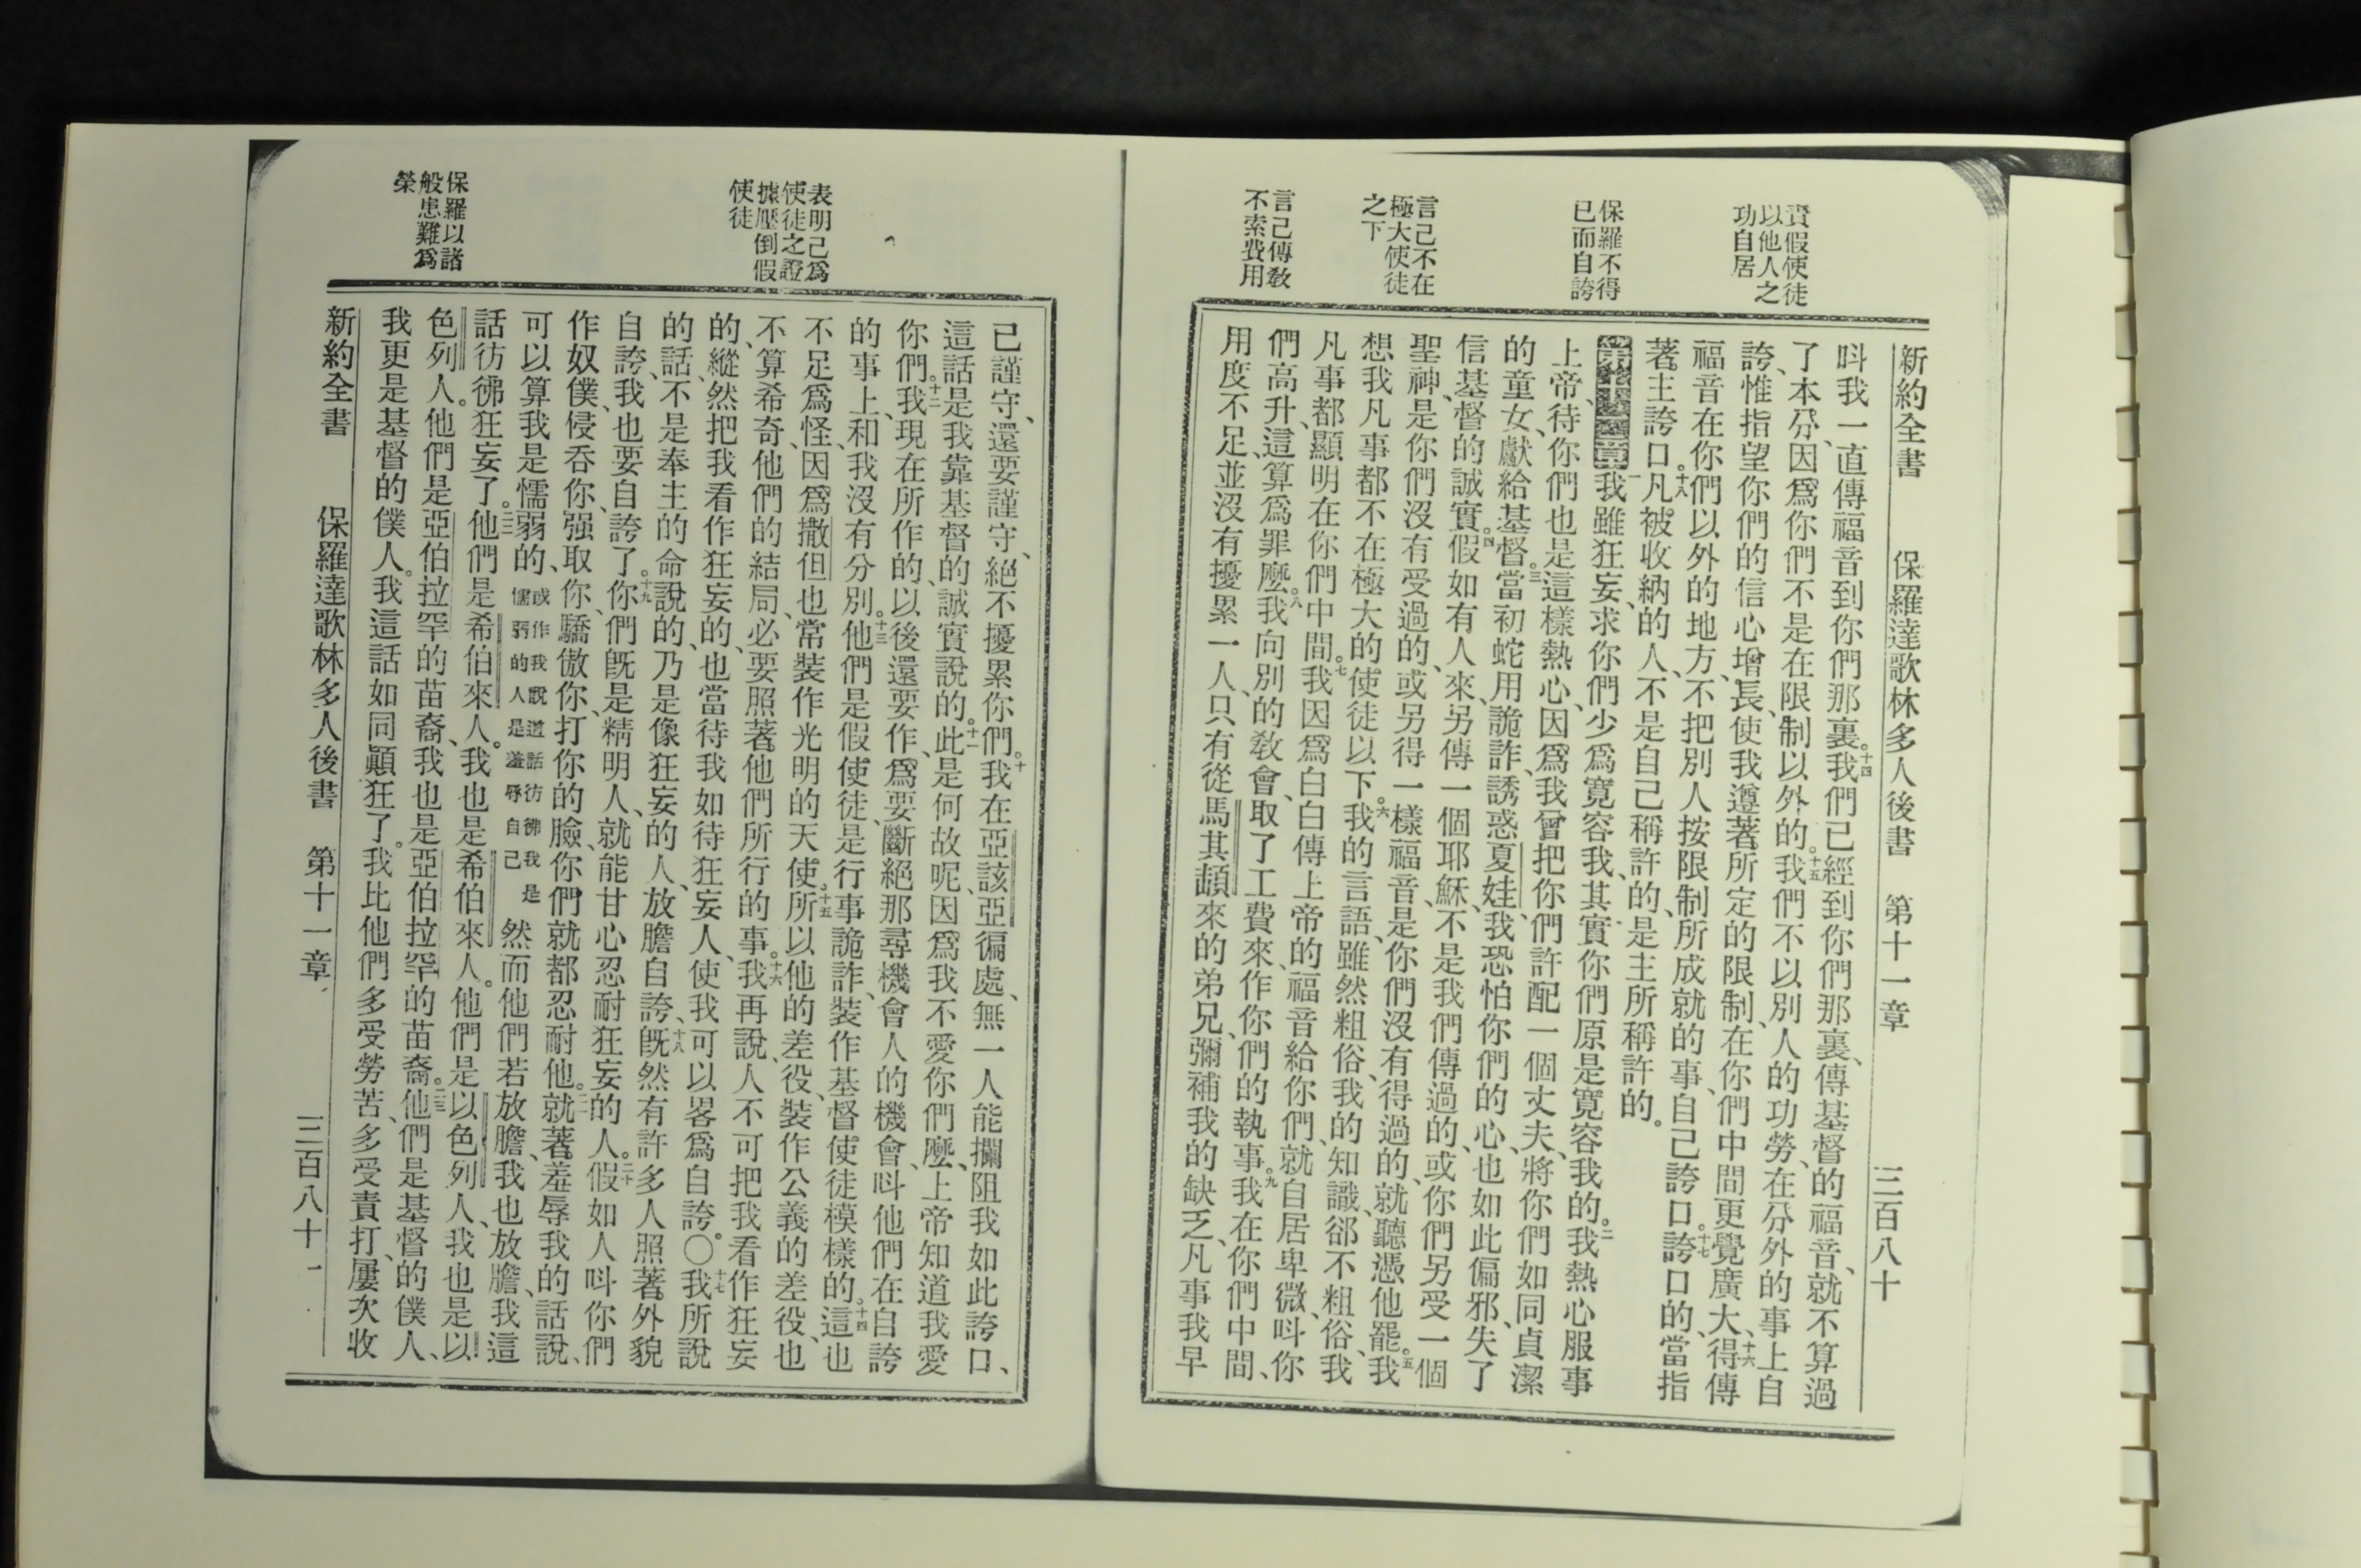 責假使徒
以他人之
功自居
保羅不得
已而自誇
言己不在
極大使徒
之下
言己傳教
不索費用
新約全書 保羅達歌林多人後書 第十一章 三百八十
呌我一直傳福音到你們那裏。十四我們已經到你們那裏、傳基督的福音、就不算過
了本分、因爲你們不是在限制以外的。十五我們不以別人的功勞、在分外的事上自
誇、惟指望你們的信心增長、使我遵著所定的限制、在你們中間更覺廣大、十六得傳
福音在你們以外的地方、不把別人按限制所成就的事、自己誇口。十七誇口的、當指
著主誇口。十八凡被收納的人、不是自己稱許的、是主所稱許的。
第十一章一我雖狂妄、求你們少爲寛容我、其實你們原是寛容我的。二我熱心服事
上帝、待你們也是這樣熱心、因爲我曾把你們許配一個丈夫、將你們如同貞潔
的童女、獻給基督。三當初蛇用詭詐、誘惑夏娃、我恐怕你們的心、也如此偏邪、失了
信基督的誠實。四假如有人來、另傳一個耶穌、不是我們傳過的、或你們另受一個
聖神、是你們沒有受過的、或另得一樣福音、是你們沒有得過的、就聽憑他罷。五我
想我凡事都不在極大的使徒以下。六我的言語、雖然粗俗、我的知識、郤不粗俗、我
凡事都顯明在你們中間。七我因爲白白傳上帝的福音給你們、就自居卑微、呌你
們高升、這算爲罪麽。八我向別的教會、取了工費來、作你們的執事。九我在你們中間、
用度不足、並沒有擾累一人、只有從馬其頓來的弟兄、彌補我的缺乏、凡事我早
表明己爲
使徒之證
據壓倒假
使徒
保羅以諸
般患難爲
榮
己謹守、還要謹守、絕不擾累你們。十我在亞該亞徧處、無一人能攔阻我如此誇口、
這話是我靠基督的誠實說的。十一此是何故呢、因爲我不愛你們麽、上帝知道我愛
你們。十二我現在所作的、以後還要作、爲要斷絕那尋機會人的機會、呌他們在自誇
的事上、和我沒有分別。十三他們是假使徒、是行事詭詐、裝作基督使徒模樣的。十四這也
不足爲怪、因爲撒但也常裝作光明的天使。十五所以他的差役、裝作公義的差役、也
不算希奇、他們的結局、必要照著他們所行的事。十六我再說、人不可把我看作狂妄
的、縱然把我看作狂妄的、也當待我如待狂妄人、使我可以畧爲自誇。〇十七我所說
的話、不是奉主的命說的、乃是像狂妄的人、放膽自誇、十八旣然有許多人照著外貌
自誇、我也要自誇了。十九你們旣是精明人、就能甘心忍耐狂妄的人。二十假如人呌你們
作奴僕、侵吞你、强取你、驕傲你、打你的臉、你們就都忍耐他。二一就著羞辱我的話說、
可以算我是懦弱的、或作我說這話彷彿我是懦弱的人是羞辱自己然而他們若放膽、我也放膽、我這
話彷彿狂妄了。二二他們是希伯來人。我也是希伯來人。他們是以色列人、我也是以
色列人。他們是亞伯拉罕的苗裔、我也是亞伯拉罕的苗裔。二三他們是基督的僕人、
我更是基督的僕人。我這話如同顚狂了。我比他們多受勞苦、多受責打、屢次收
新約全書 保羅達歌林多人後書 第十一章 三百八十一